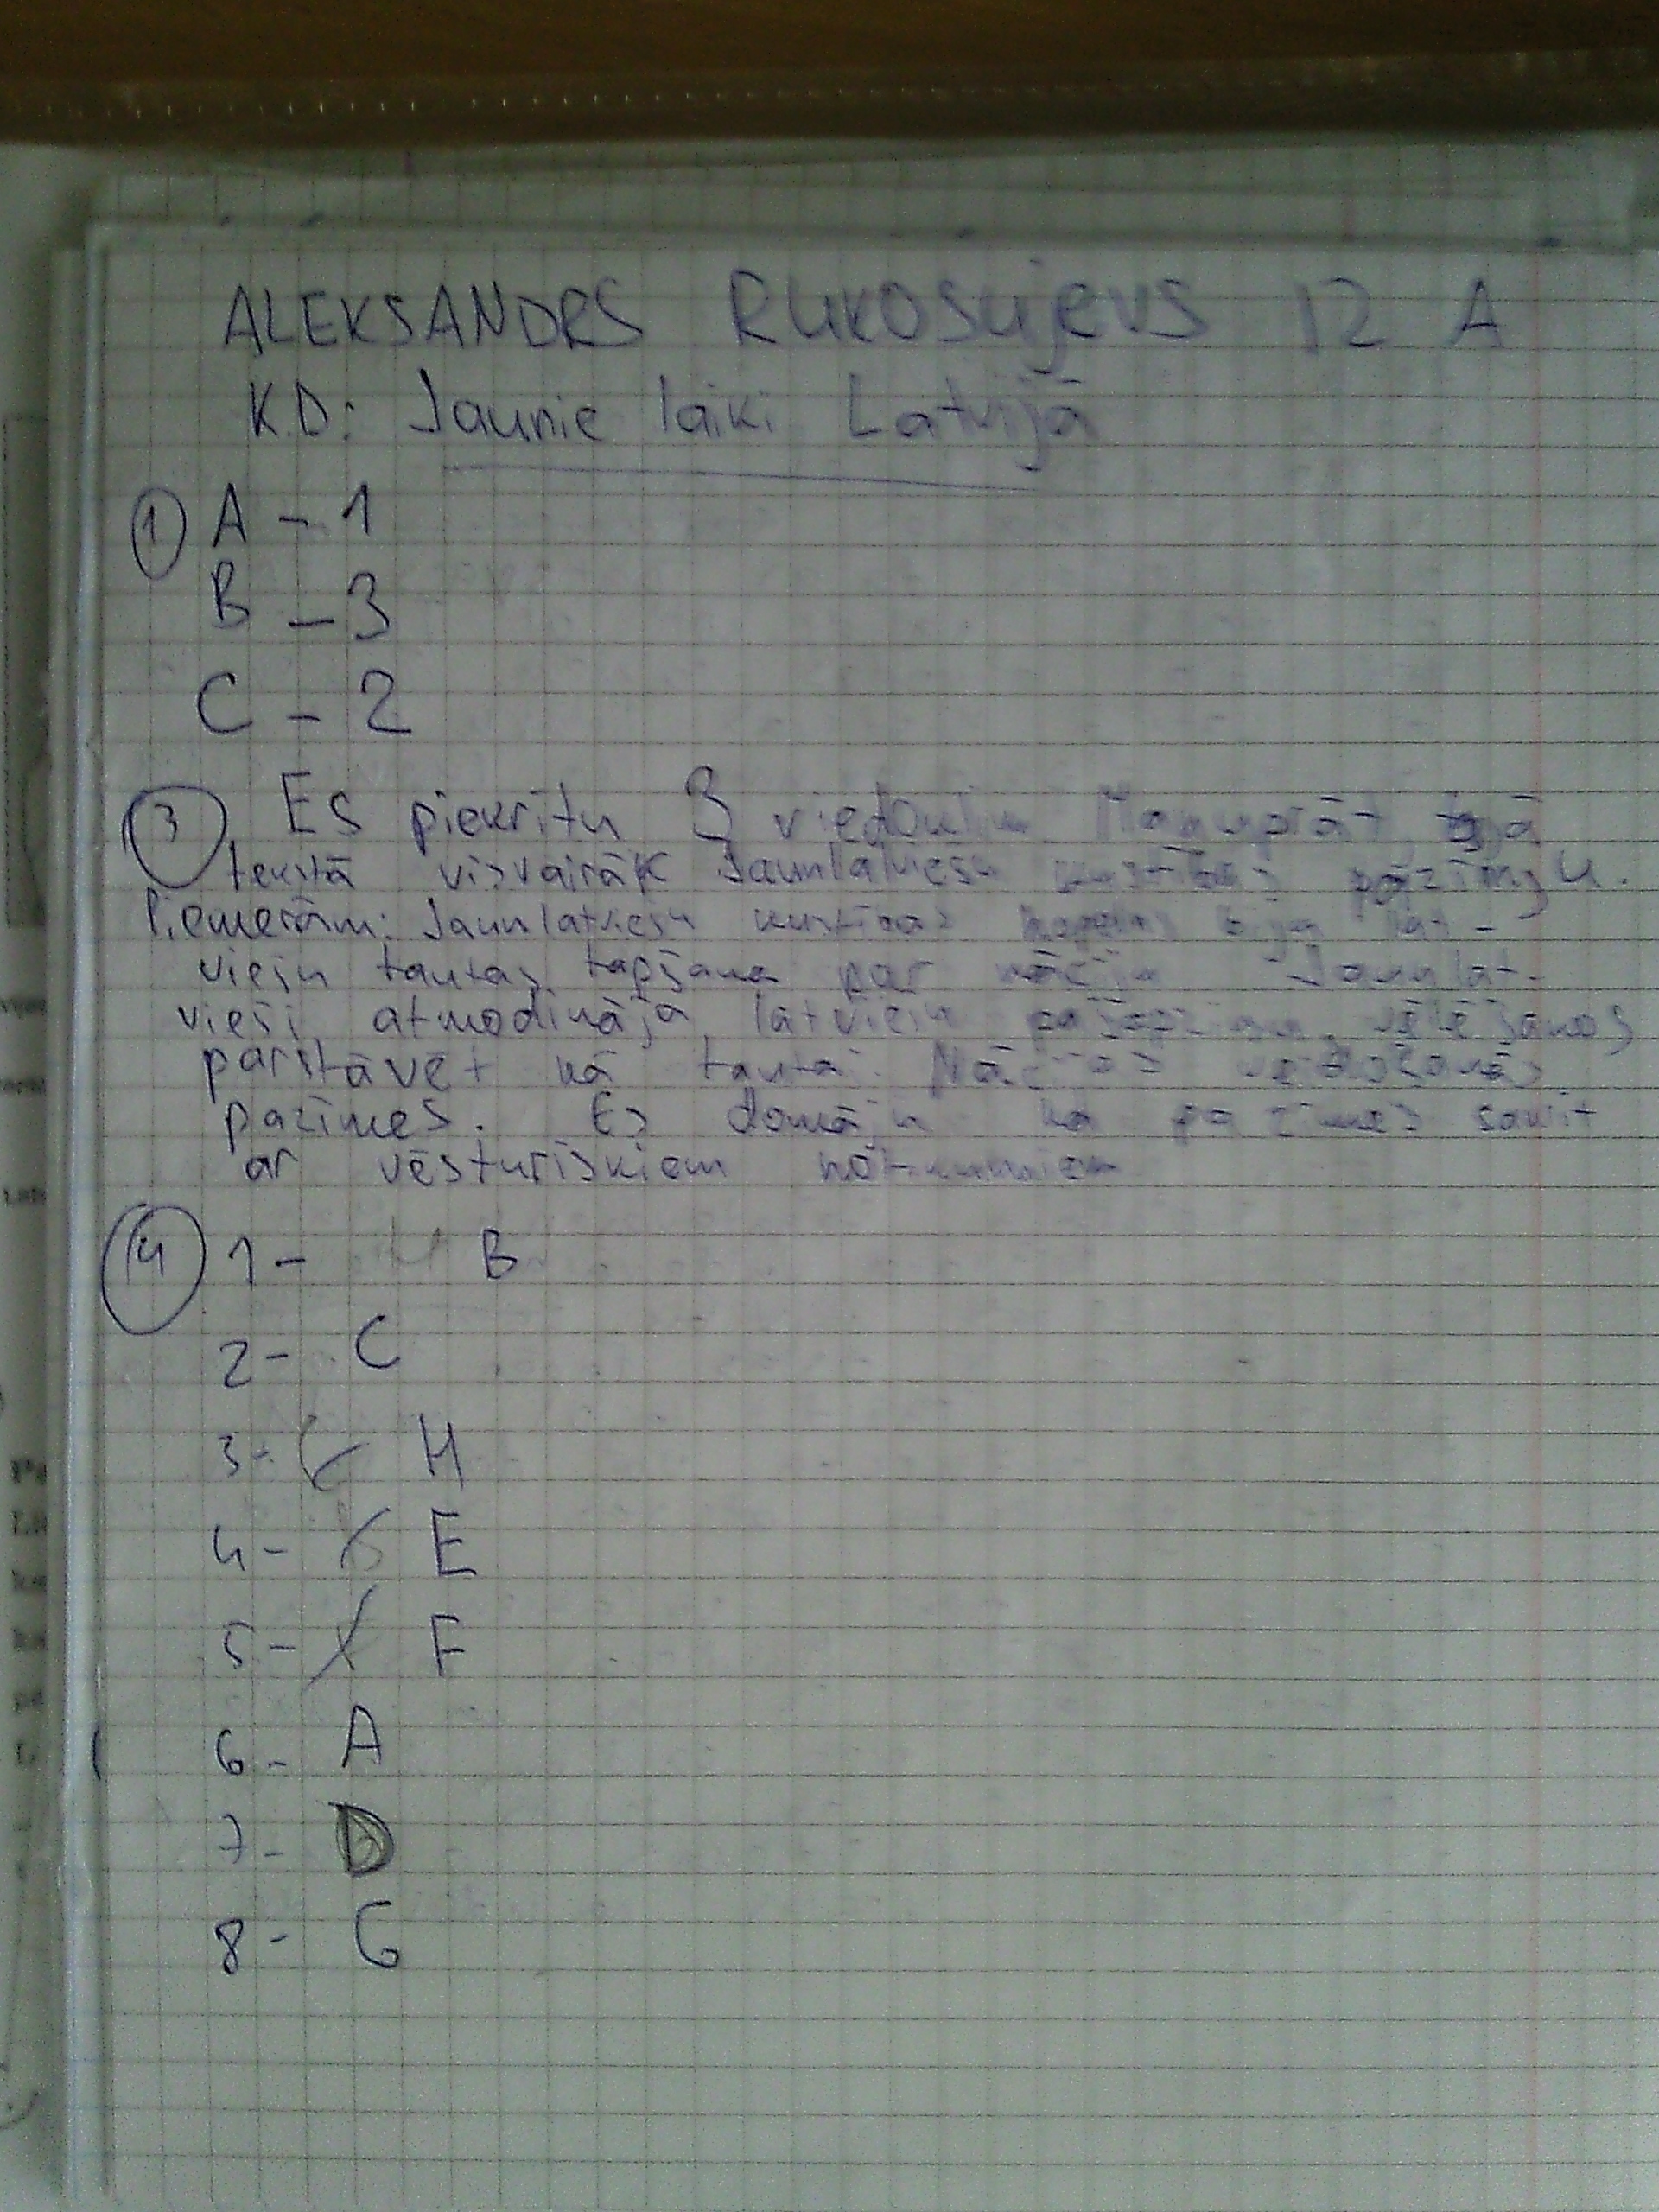 ALEKSANDRS RUKOSUJEVS 12 A
K.D: Jaunie laiki Latvijā
1 A - 1
B - 3
C - 2
3 Es piekrītu 3 viedoklim Manuprāt tajā
tekstā visvairāk Jaunlatviešu kustības pazīmju.
Piemerām: Jaunlatviešu kustības bija lat-
viešu tautas tapšana par nāciju Jaunlat-
vieši atmodināja latviešu pašapziņu, vēlēšanos
pārstāvēt kā tautai. Nācijas veidošanās
pazīmes. Es domāju ka pazīmes sakrīt
ar vēsturiskiem notikumiem
4 1 - B
2 - C
3 - H
4 - E
5 - F
6 - A
7 - D
8 - G